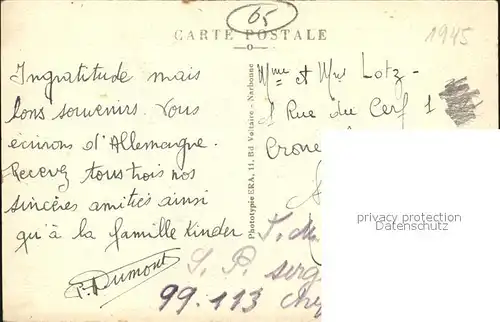 65
1945
CARTE POSTALE
Ingratitude mais
bons souvenirs. Vous
écrirons d'Allemagne.
Recevez tous trois nos
sincères amitiés ainsi
qu'à la famille Kinder
P. Dumont
Phototypie ERA, 11, Bd Voltaire - Narbonne
Mme et Mrs Lotz -
1 Rue du Cerf 1
Crone
S. P.
99.113
privacy protection
Datenschutz